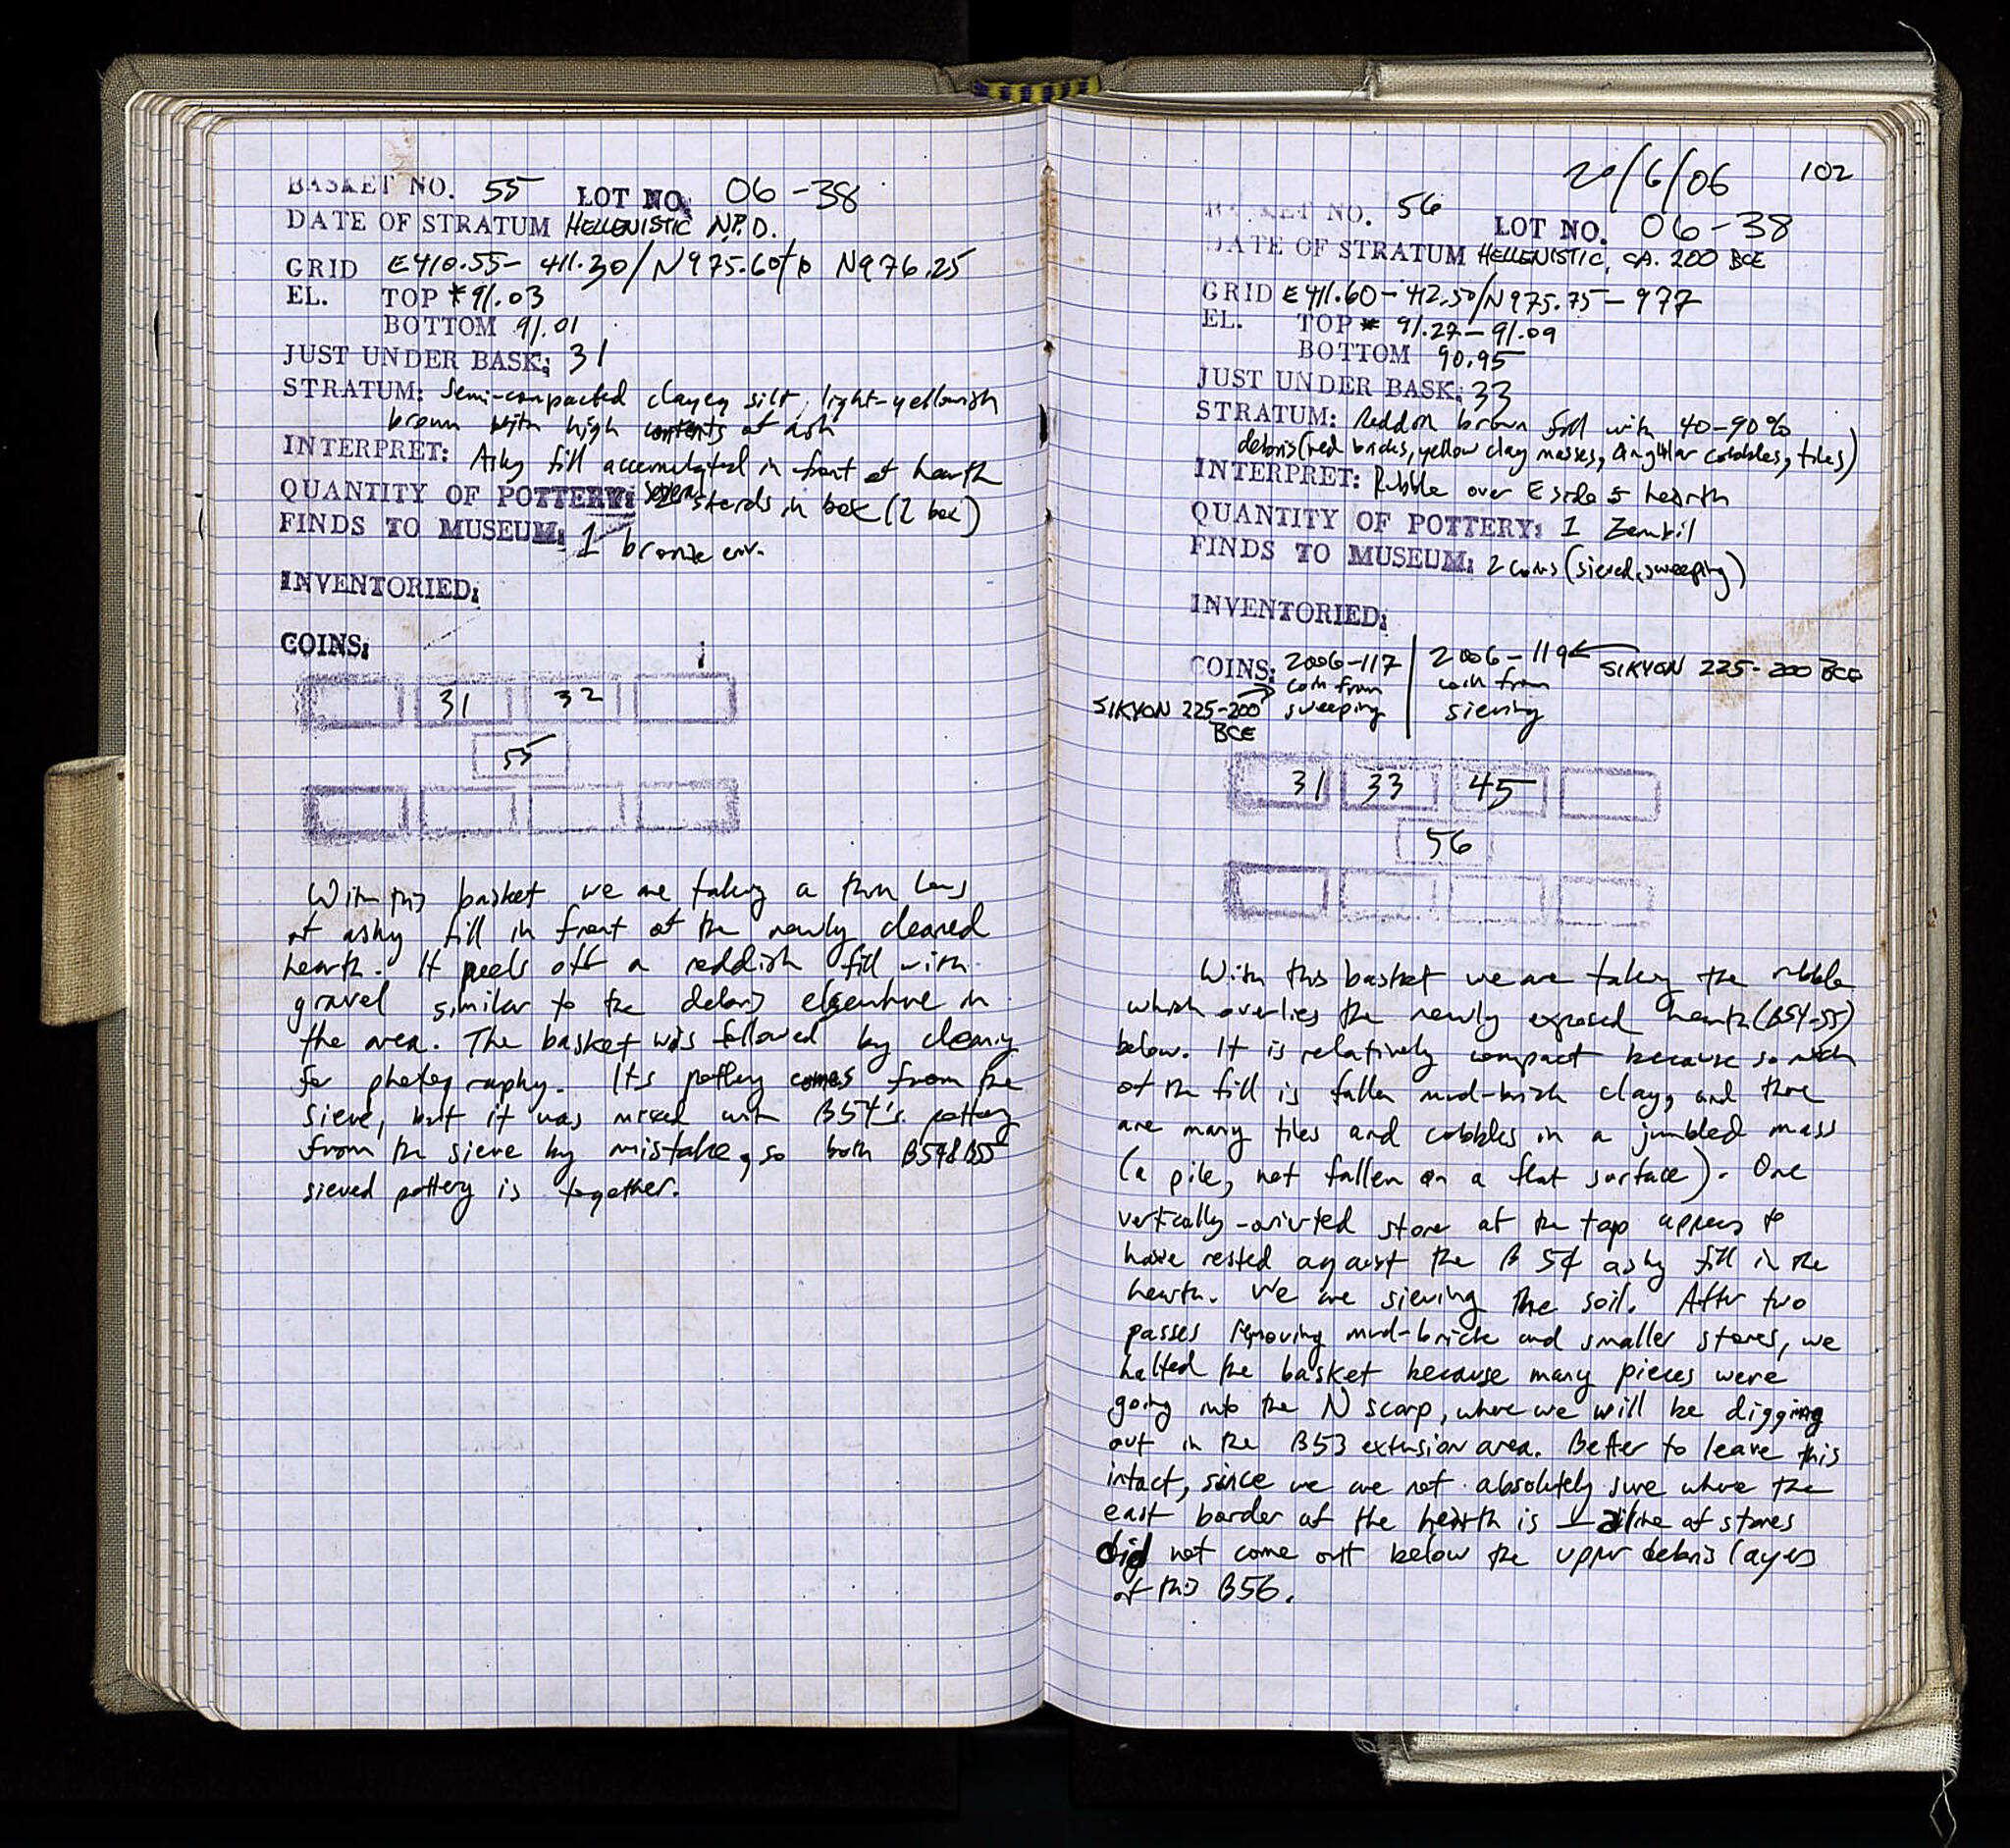 BASKET NO. 55 LOT NO. 06-38
DATE OF STRATUM HELLENISTIC N.P.D.
GRID E410.55-411.30/N975.60 to N976.25
EL. TOP * 91.03
BOTTOM 91.01
JUST UNDER BASK: 31
STRATUM: Semi-compacted clayey silt, light-yellowish
brown with high contents of ash
INTERPRET: Ashy fill accumulated in front of hearth
QUANTITY OF POTTERY: sherds in box (2 box)
FINDS TO MUSEUM: 1 bronze env.
INVENTORIED:
COINS:
31 32
55
With this basket we are taking a thin lens
of ashy fill in front of the newly cleared
hearth. It peels off a reddish fill with
gravel similar to the debris elsewhere in
the area. The basket was followed by cleaning
for photography. Its pottery comes from the
sieve, but it was mixed with B54's pottery
from the sieve by mistake, so both B54&B55
sieved pottery is together.
20/6/06 102
BASKET NO. 56
LOT NO. 06-38
DATE OF STRATUM HELLENISTIC, CA. 200 BCE
GRID E411.60-412.50/N975.75-977
EL. TOP * 91.27-91.09
BOTTOM 90.95
JUST UNDER BASK: 33
STRATUM: Reddish brown fill with 40-90%
debris (red bricks, yellow clay masses, angular cobbles, tiles)
INTERPRET: Rubble over E side of hearth
QUANTITY OF POTTERY: 1 Zembil
FINDS TO MUSEUM: 2 coins (sieved, sweeping)
INVENTORIED:
COINS: 2006-117 | 2006-119 ← SIKYON 225-200 BCE
coin from coin from
SIKYON 225-200 → sweeping sieving
BCE
31 33 45
56
With this basket we are taking the rubble
which overlies the newly exposed hearth (B54-55)
below. It is relatively compact because so much
of the fill is fallen mud-brick clay, and there
are many tiles and cobbles in a jumbled mass
(a pile, not fallen on a flat surface). One
vertically-oriented stone at the top appears to
have rested against the B54 ashy fill in the
hearth. We are sieving the soil. After two
passes removing mud-brick and smaller stones, we
halted the basket because many pieces were
going into the N scarp, where we will be digging
out in the B53 extension area. Better to leave this
intact, since we are not absolutely sure where the
east border of the hearth is – a line of stones
did not come out below the upper debris layers
of this B56.